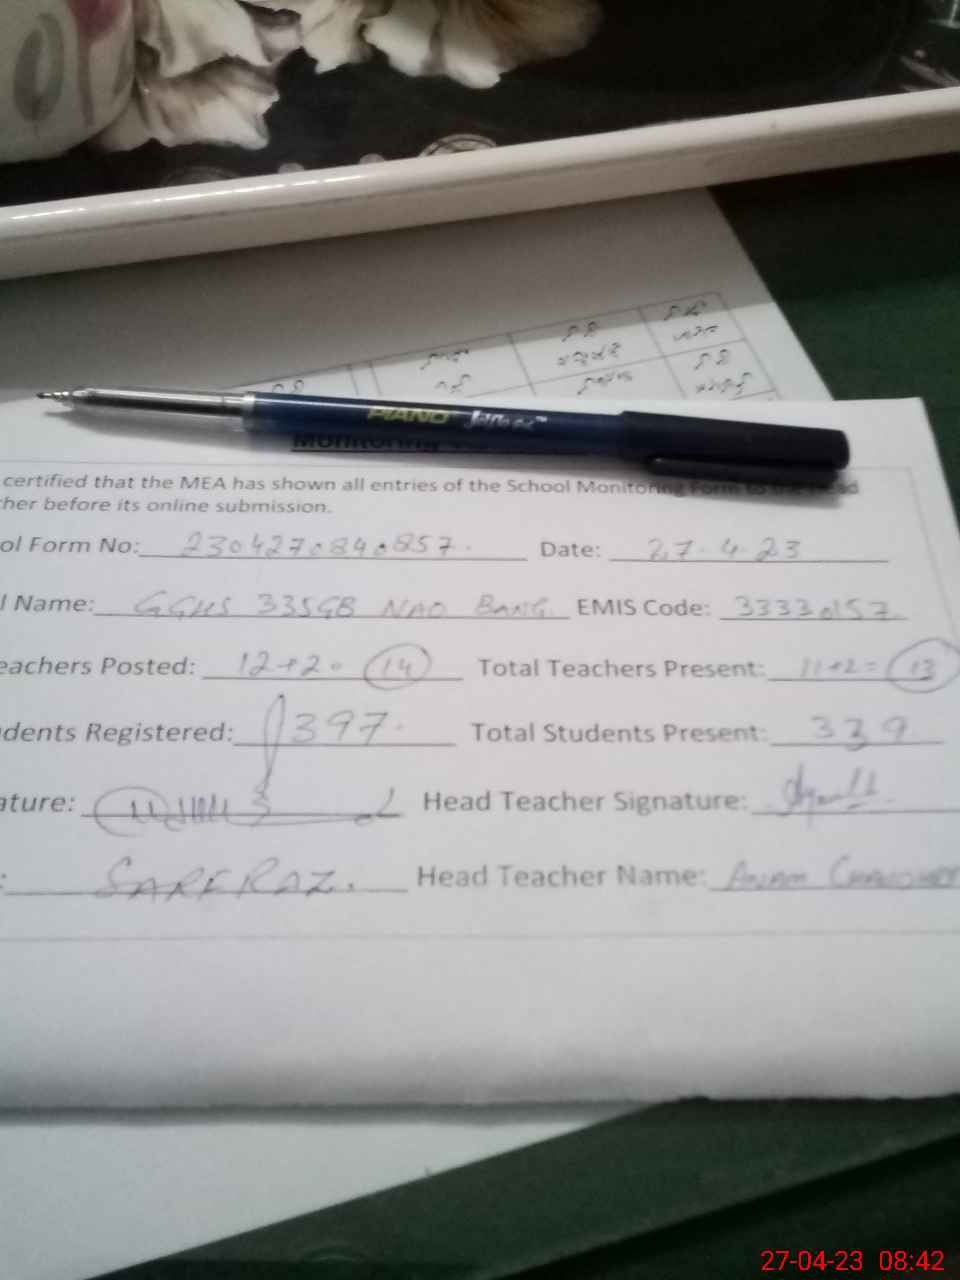 PIANO
Monitoring
certified that the MEA has shown all entries of the School Monitoring Form to the Head
her before its online submission.
ol Form No: 2304270840857. Date: 27.4.23
l Name: GGHS 335GB NAO BANG. EMIS Code: 33330157
eachers Posted: 12+2= 14 Total Teachers Present: 11+2= 13
dents Registered: 397. Total Students Present: 339
ature: Head Teacher Signature:
: SARFRAZ. Head Teacher Name:
27-04-23 08:42